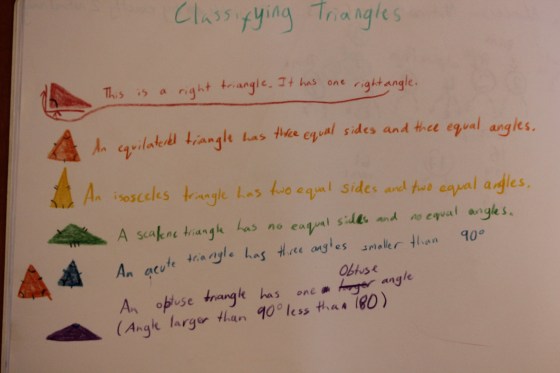 Classifying Triangles
This is a right triangle. It has one right angle.
An equilaterel triangle has three equal sides and three equal angles.
An isosceles triangle has two equal sides and two equal angles.
A scalene triangle has no eaqual sides and no equal angles.
An acute triangle has three angles smaller than 90°
Obtuse
An obtuse triangle has one larger angle
(Angle larger than 90° less than 180)